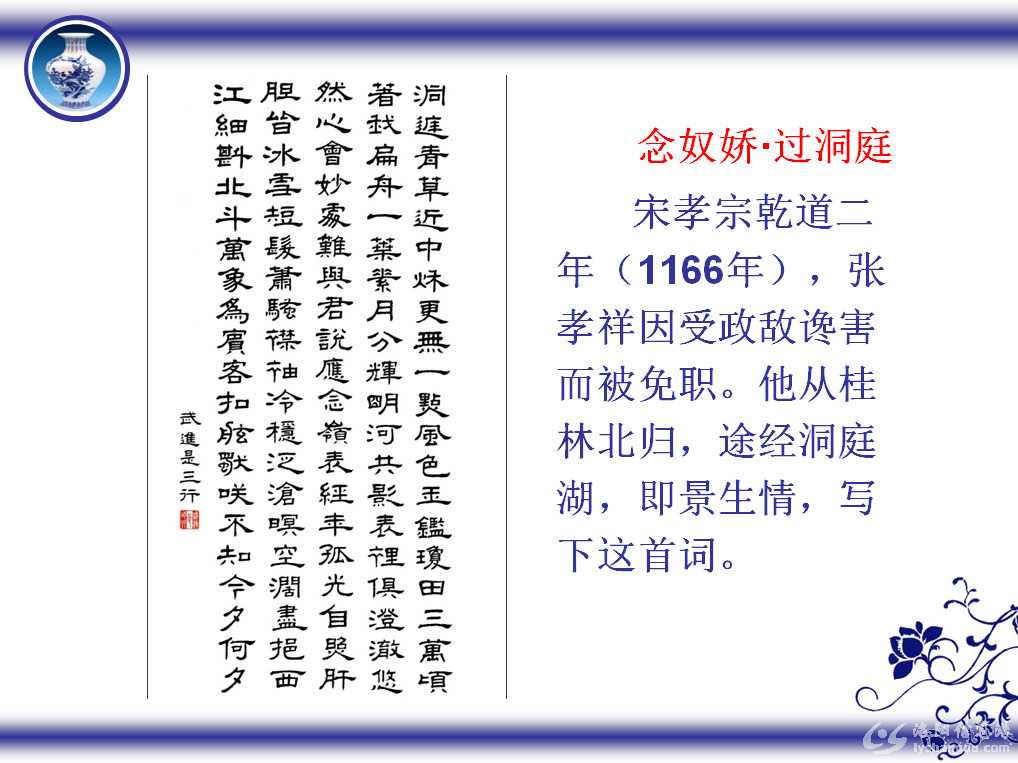 念奴娇·过洞庭
宋孝宗乾道二
年（1166年），张
孝祥因受政敌谗害
而被免职。他从桂
林北归，途经洞庭
湖，即景生情，写
下这首词。
洞庭青草近中秌更無一點風色玉鑑瓊田三萬頃
著我扁舟一葉素月分輝明河共影表裡俱澄澈悠
然心會妙處難與君說應念嶺表經年孤光自照肝
胆皆冰雪短髮蕭騷襟袖冷穩泛滄溟空濶盡挹西
江細斟北斗萬象為賓客扣舷歗咲不知今夕何夕
武進是三行